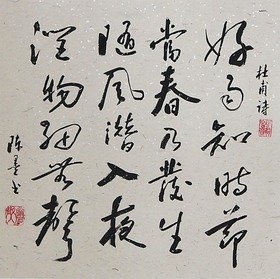 好雨知時節
當春乃發生
隨風潛入夜
潤物細無聲
杜甫詩
陈墨书